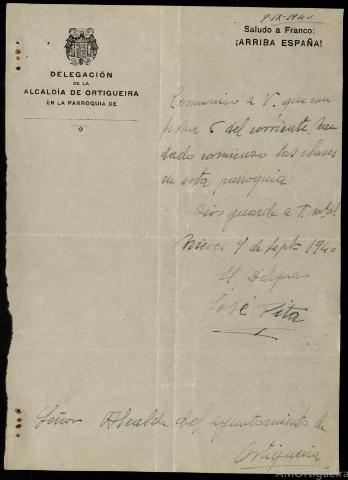 9-IX-1940
Saludo a Franco:
¡ARRIBA ESPAÑA!
DELEGACIÓN
DE LA
ALCALDÍA DE ORTIGUEIRA
EN LA PARROQUIA DE
Comunico a V. que con
fecha 6 del corriente, han
dado comienzo las clases
en esta parroquia.
Dios guarde a V. 
Nieves 9 de Sepbre 1940
El Delegado
José Pita
Señor Alcalde del ayuntamiento de
Ortigueira
AMOrtigueira